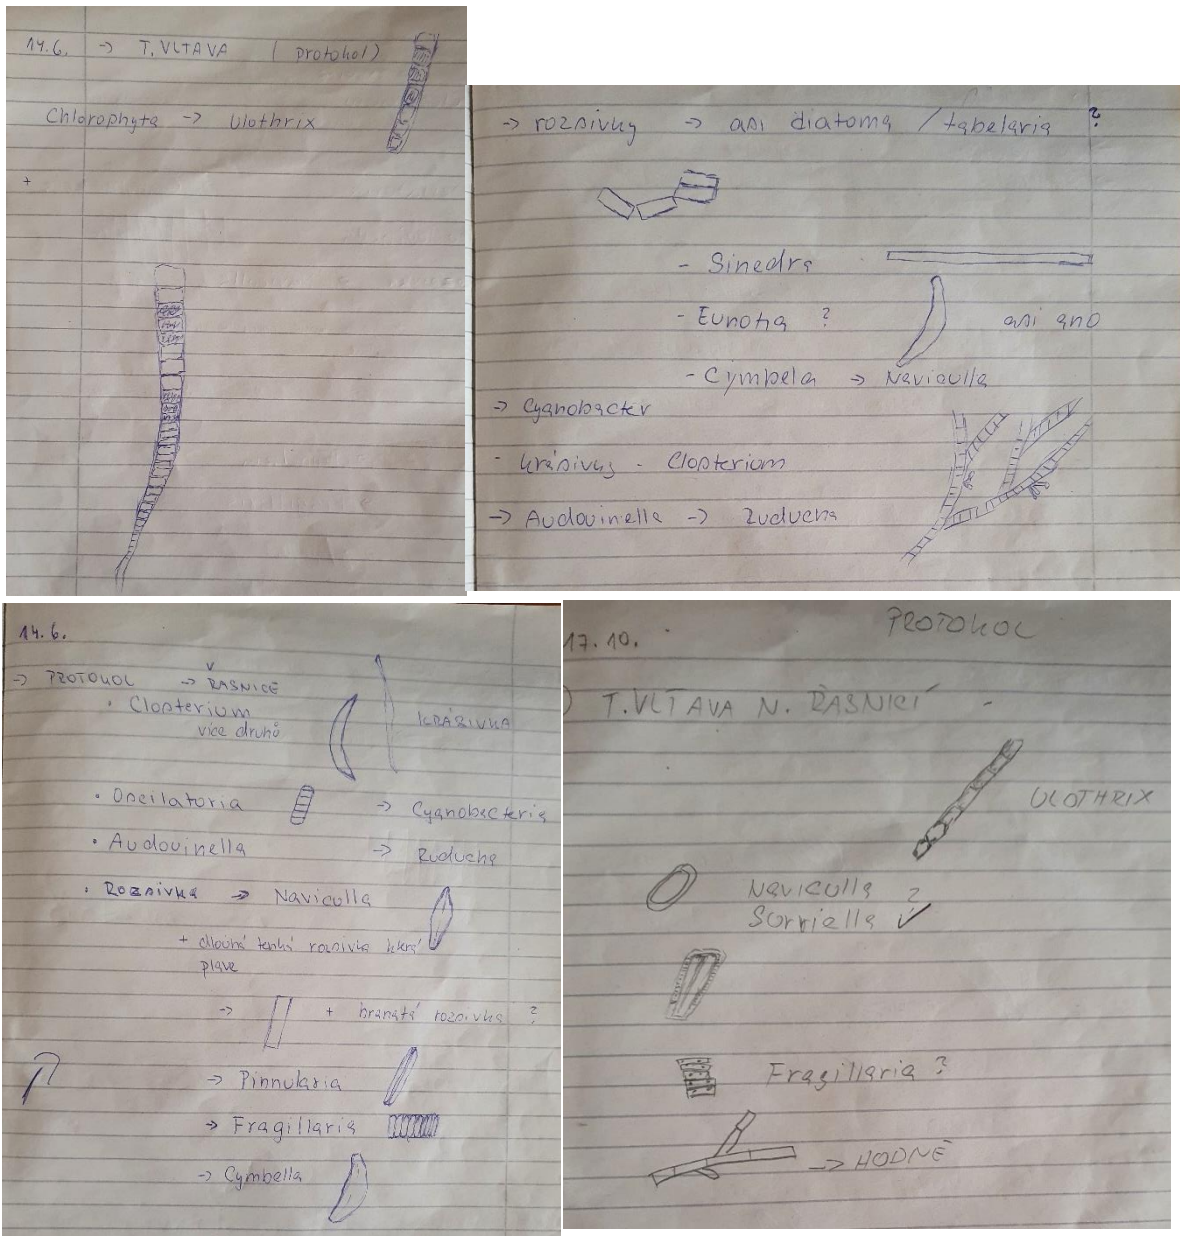 14.6. → T. VLTAVA (protokol)
Chlorophyta → Ulothrix
+
→ rozsivky → asi diatoma / tabelaria ?
- Sinedra
- Eunotia ? asi ano
- Cymbela → Naviculla
→ Cyanobacter
- krásivky - Closterium
→ Audouinella → Ruducha
14.6.
→ PROTOKOL → ŘASNICE
· Closterium
více druhů
KRÁSIVKA
· Oscilatoria → Cyanobacteria
· Audouinella → Ruducha
· Rozsivka → Naviculla
+ dlouhá tenká rozsivka která
plave
→ + hranatá rozsivka ?
→ Pinnularia
→ Fragillaria
→ Cymbella
17.10. PROTOKOL
) T. VLTAVA N. ŘASNICÍ -
ULOTHRIX
Naviculla ?
Surriella ✓
Fragillaria ?
→ HODNĚ